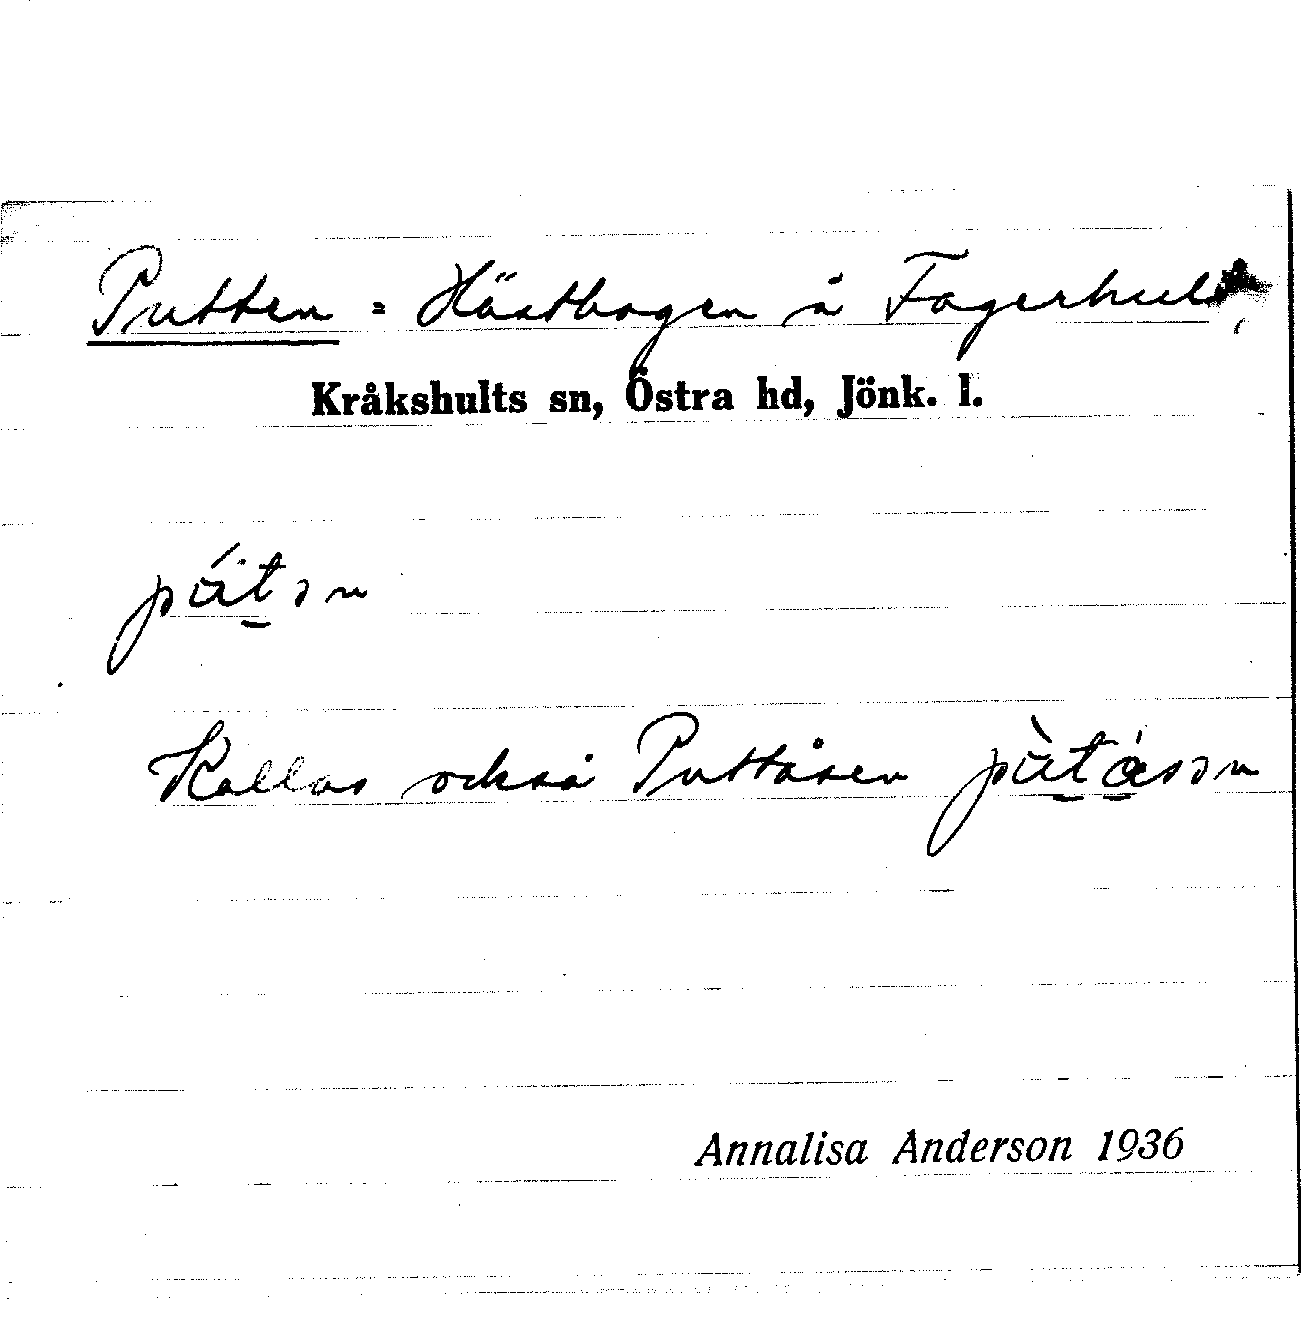 Putten = Hästhagen å Fagerhult
Kråkshults sn, Östra hd, Jönk. l.
Kallas också Puttåsen
Annalisa Anderson 1936